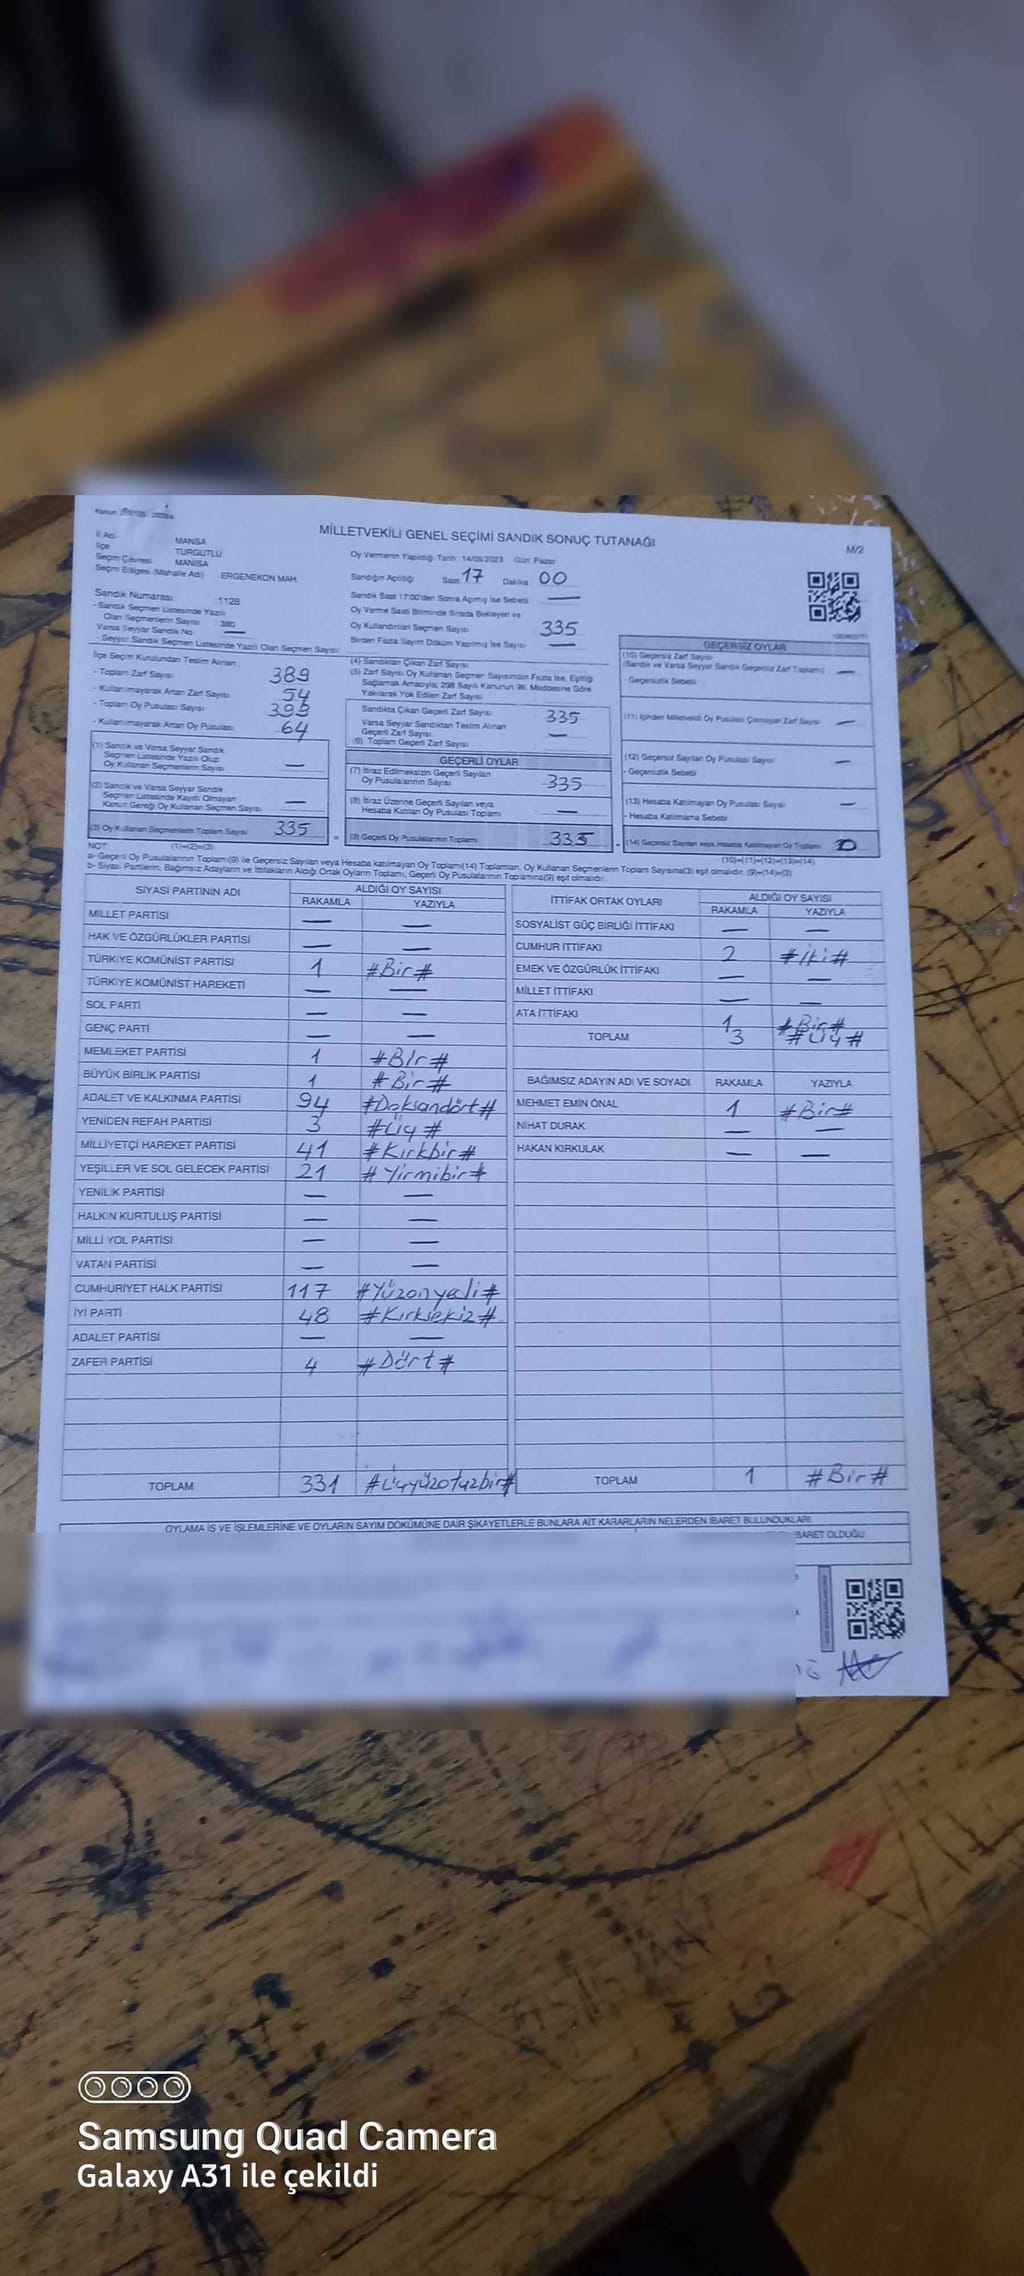 MİLLETVEKİLİ GENEL SEÇİMİ SANDIK SONUÇ TUTANAĞI
M/2
İl Adı : MANİSA
İlçe : TURGUTLU
Seçim Çevresi : MANİSA
Seçim Bölgesi (Mahalle Adı) : ERGENEKON MAH.
Oy Vermenin Yapıldığı Tarih : 14/05/2023 Gün: Pazar
Sandığın Açıldığı Saat: 17 Dakika 00
Sandık Saat 17:00'den Sonra Açılmış İse Sebebi —
Oy Verme Saati Bitiminde Sırada Bekleyen ve
Oy Kullandırılan Seçmen Sayısı 335
Birden Fazla Sayım Döküm Yapılmış İse Sayısı —
Sandık Numarası : 1128
- Sandık Seçmen Listesinde Yazılı
Olan Seçmenlerin Sayısı : 380
Varsa Seyyar Sandık No —
- Seyyar Sandık Seçmen Listesinde Yazılı Olan Seçmen Sayısı:
İlçe Seçim Kurulundan Teslim Alınan :
- Toplam Zarf Sayısı 389
- Kullanılmayarak Artan Zarf Sayısı 54
- Toplam Oy Pusulası Sayısı 399
- Kullanılmayarak Artan Oy Pusulası 64
(1) Sandık ve Varsa Seyyar Sandık
Seçmen Listesinde Yazılı Olup
Oy Kullanan Seçmenlerin Sayısı —
(2) Sandık ve Varsa Seyyar Sandık
Seçmen Listesinde Kayıtlı Olmayan
Kanun Gereği Oy Kullanan Seçmen Sayısı —
(3) Oy Kullanan Seçmenlerin Toplam Sayısı 335
(4) Sandıktan Çıkan Zarf Sayısı
(5) Zarf Sayısı Oy Kullanan Seçmen Sayısından Fazla İse, Eşitliği
Sağlamak Amacıyla, 298 Sayılı Kanunun 98. Maddesine Göre
Yakılarak Yok Edilen Zarf Sayısı
Sandıkta Çıkan Geçerli Zarf Sayısı 335
Varsa Seyyar Sandıktan Teslim Alınan
Geçerli Zarf Sayısı —
(6) Toplam Geçerli Zarf Sayısı
GEÇERLİ OYLAR
(7) İtiraz Edilmeksizin Geçerli Sayılan
Oy Pusulalarının Sayısı 335
(8) İtiraz Üzerine Geçerli Sayılan veya
Hesaba Katılan Oy Pusulası Toplamı —
(9) Geçerli Oy Pusulalarının Toplamı 335
GEÇERSİZ OYLAR
(10) Geçersiz Zarf Sayısı
(Sandık ve Varsa Seyyar Sandık Geçersiz Zarf Toplamı) —
- Geçersizlik Sebebi
(11) İçinden Milletvekili Oy Pusulası Çıkmayan Zarf Sayısı —
(12) Geçersiz Sayılan Oy Pusulası Sayısı —
- Geçersizlik Sebebi
(13) Hesaba Katılmayan Oy Pusulası Sayısı —
- Hesaba Katılmama Sebebi
(14) Geçersiz Sayılan veya Hesaba Katılmayan Oy Toplamı 0
NOT: (1)+(2)=(3) (10)+(11)+(12)+(13)=(14)
a- Geçerli Oy Pusulalarının Toplamı(9) ile Geçersiz Sayılan veya Hesaba katılmayan Oy Toplamı(14) Toplamları, Oy Kullanan Seçmenlerin Toplam Sayısına(3) eşit olmalıdır. (9)+(14)=(3)
b- Siyasi Partilerin, Bağımsız Adayların ve İttifakların Aldığı Ortak Oyların Toplamı, Geçerli Oy Pusulalarının Toplamına(9) eşit olmalıdır.
SİYASİ PARTİNİN ADI ALDIĞI OY SAYISI
RAKAMLA YAZIYLA
MİLLET PARTİSİ — —
HAK VE ÖZGÜRLÜKLER PARTİSİ — —
TÜRKİYE KOMÜNİST PARTİSİ 1 #Bir#
TÜRKİYE KOMÜNİST HAREKETİ — —
SOL PARTİ — —
GENÇ PARTİ — —
MEMLEKET PARTİSİ 1 #Bir#
BÜYÜK BİRLİK PARTİSİ 1 #Bir#
ADALET VE KALKINMA PARTİSİ 94 #Doksandört#
YENİDEN REFAH PARTİSİ 3 #Üç#
MİLLİYETÇİ HAREKET PARTİSİ 41 #Kırkbir#
YEŞİLLER VE SOL GELECEK PARTİSİ 21 #Yirmibir#
YENİLİK PARTİSİ — —
HALKIN KURTULUŞ PARTİSİ — —
MİLLİ YOL PARTİSİ — —
VATAN PARTİSİ — —
CUMHURİYET HALK PARTİSİ 117 #Yüzonyedi#
İYİ PARTİ 48 #Kırksekiz#
ADALET PARTİSİ — —
ZAFER PARTİSİ 4 #Dört#
TOPLAM 331 #Üçyüzotuzbir#
İTTİFAK ORTAK OYLARI ALDIĞI OY SAYISI
RAKAMLA YAZIYLA
SOSYALİST GÜÇ BİRLİĞİ İTTİFAKI — —
CUMHUR İTTİFAKI 2 #İki#
EMEK VE ÖZGÜRLÜK İTTİFAKI — —
MİLLET İTTİFAKI — —
ATA İTTİFAKI 1 #Bir#
TOPLAM 3 #Üç#
BAĞIMSIZ ADAYIN ADI VE SOYADI RAKAMLA YAZIYLA
MEHMET EMİN ÖNAL 1 #Bir#
NİHAT DURAK — —
HAKAN KIRKULAK — —
TOPLAM 1 #Bir#
OYLAMA İŞ VE İŞLEMLERİNE VE OYLARIN SAYIM DÖKÜMÜNE DAİR ŞİKAYETLERLE BUNLARA AİT KARARLARIN NELERDEN İBARET BULUNDUKLARI
İBARET OLDUĞU
Samsung Quad Camera
Galaxy A31 ile çekildi